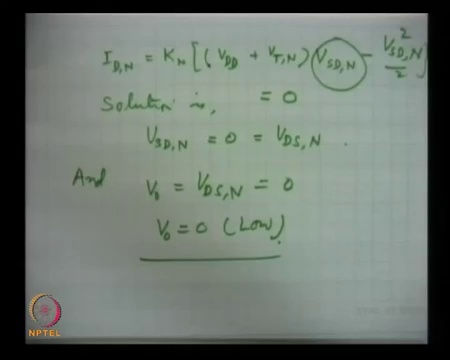 I_{D,N} = K_n [ (V_{DD} + V_{T,N}) V_{SD,N} - V_{SD,N}^2 / 2 ]
Solution is, = 0
V_{SD,N} = 0 = V_{DS,N} .
And V_0 = V_{DS,N} = 0
V_0 = 0 (Low) .
NPTEL